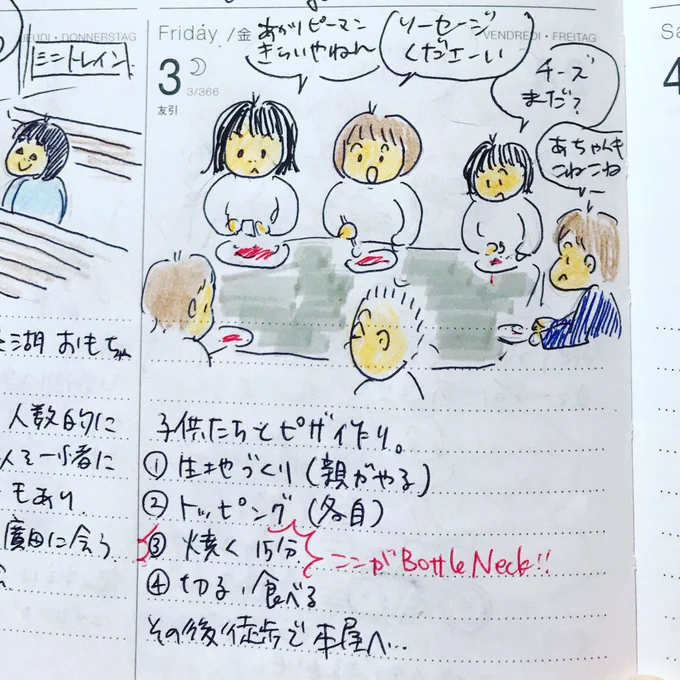 JEUDI・DONNERSTAG
ミニトレイン
湖 おもちゃ
人数的に
もあり
廣田に会う
Friday /金
3
3/366
友引
VENDREDI・FREITAG
あがりピーマン
きらいやねん
ソーセージ
くださーい
チーズ
まだ？
あちゃんも
こねこね
子供たちとピザ作り。
① 生地づくり(親がやる)
② トッピング(各自)
③ 焼く 15分
ここがBottle Neck!!
④ 切る、食べる
その後徒歩で本屋へ…
Sa
4